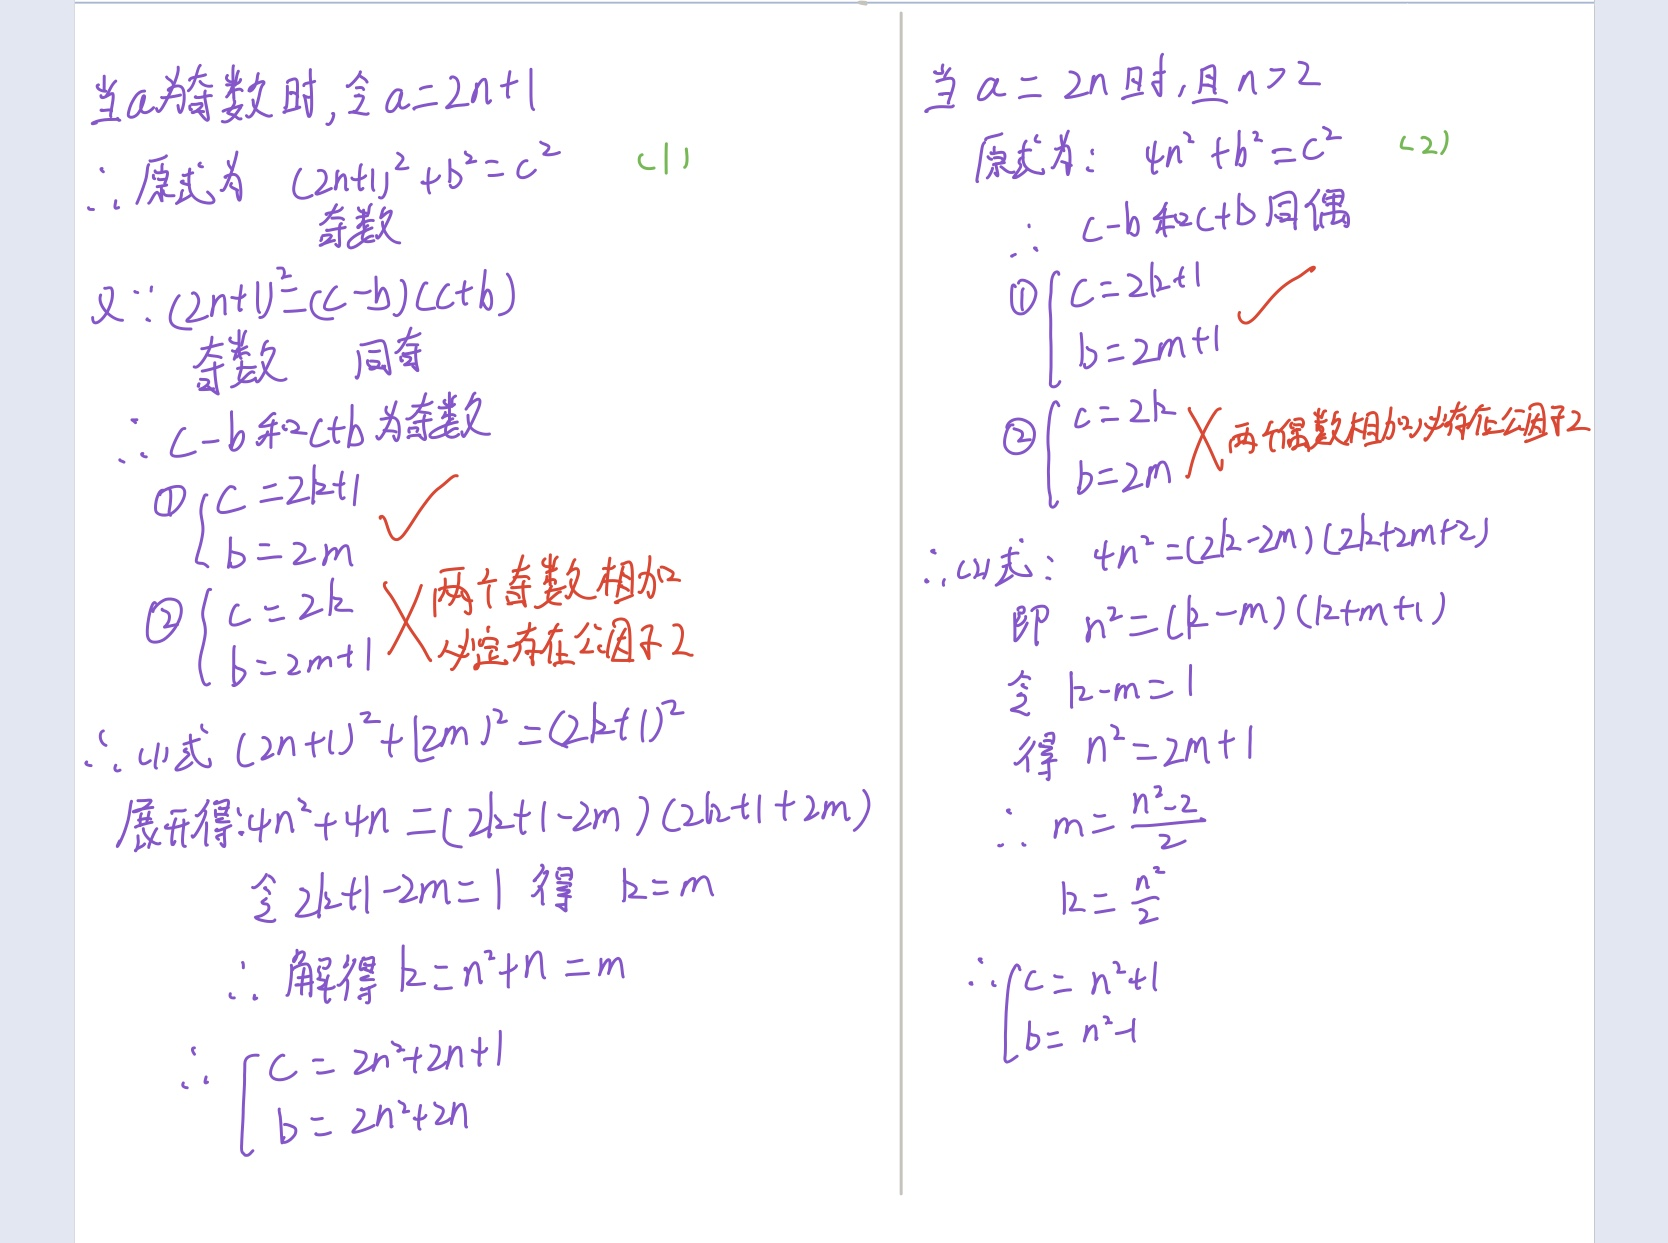 当a为奇数时,令a=2n+1
∴原式为 (2n+1)²+b²=c² (1)
奇数
又∵(2n+1)²=(c-b)(c+b)
奇数 同奇
∴c-b和c+b为奇数
① { c=2k+1
b=2m ✓
② { c=2k
b=2m+1 ✗ 两个奇数相加
必定存在公因子2
∴(1)式 (2n+1)²+(2m)²=(2k+1)²
展开得:4n²+4n=(2k+1-2m)(2k+1+2m)
令2k+1-2m=1 得 k=m
∴解得k=n²+n=m
∴ { c=2n²+2n+1
b=2n²+2n
当a=2n时,且n>2
原式为: 4n²+b²=c² (2)
∴ c-b和c+b同偶
① { c=2k+1
b=2m+1 ✓
② { c=2k
b=2m ✗ 两个偶数相加必存在公因子2
∴(2)式: 4n²=(2k-2m)(2k+2m+2)
即 n²=(k-m)(k+m+1)
令 k-m=1
得 n²=2m+1
∴ m=(n²-2)/2
k=n²/2
∴ { c=n²+1
b=n²-1